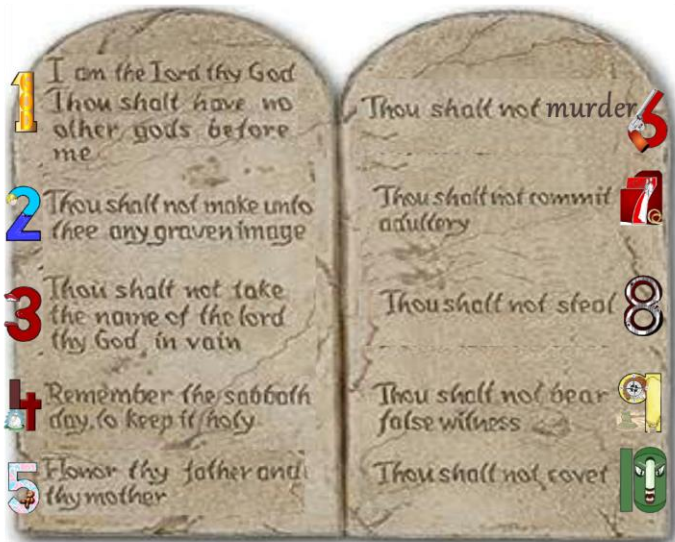 1 I am the Lord thy God
Thou shalt have no
other gods before
me
2 Thou shalt not make unto
thee any graven image
3 Thou shalt not take
the name of the lord
thy God in vain
4 Remember the sabbath
day, to keep it holy
5 Honor thy father and
thy mother
Thou shalt not murder 6
Thou shalt not commit 7
adultery
Thou shalt not steal 8
Thou shall not bear 9
false witness
Thou shalt not covet 10